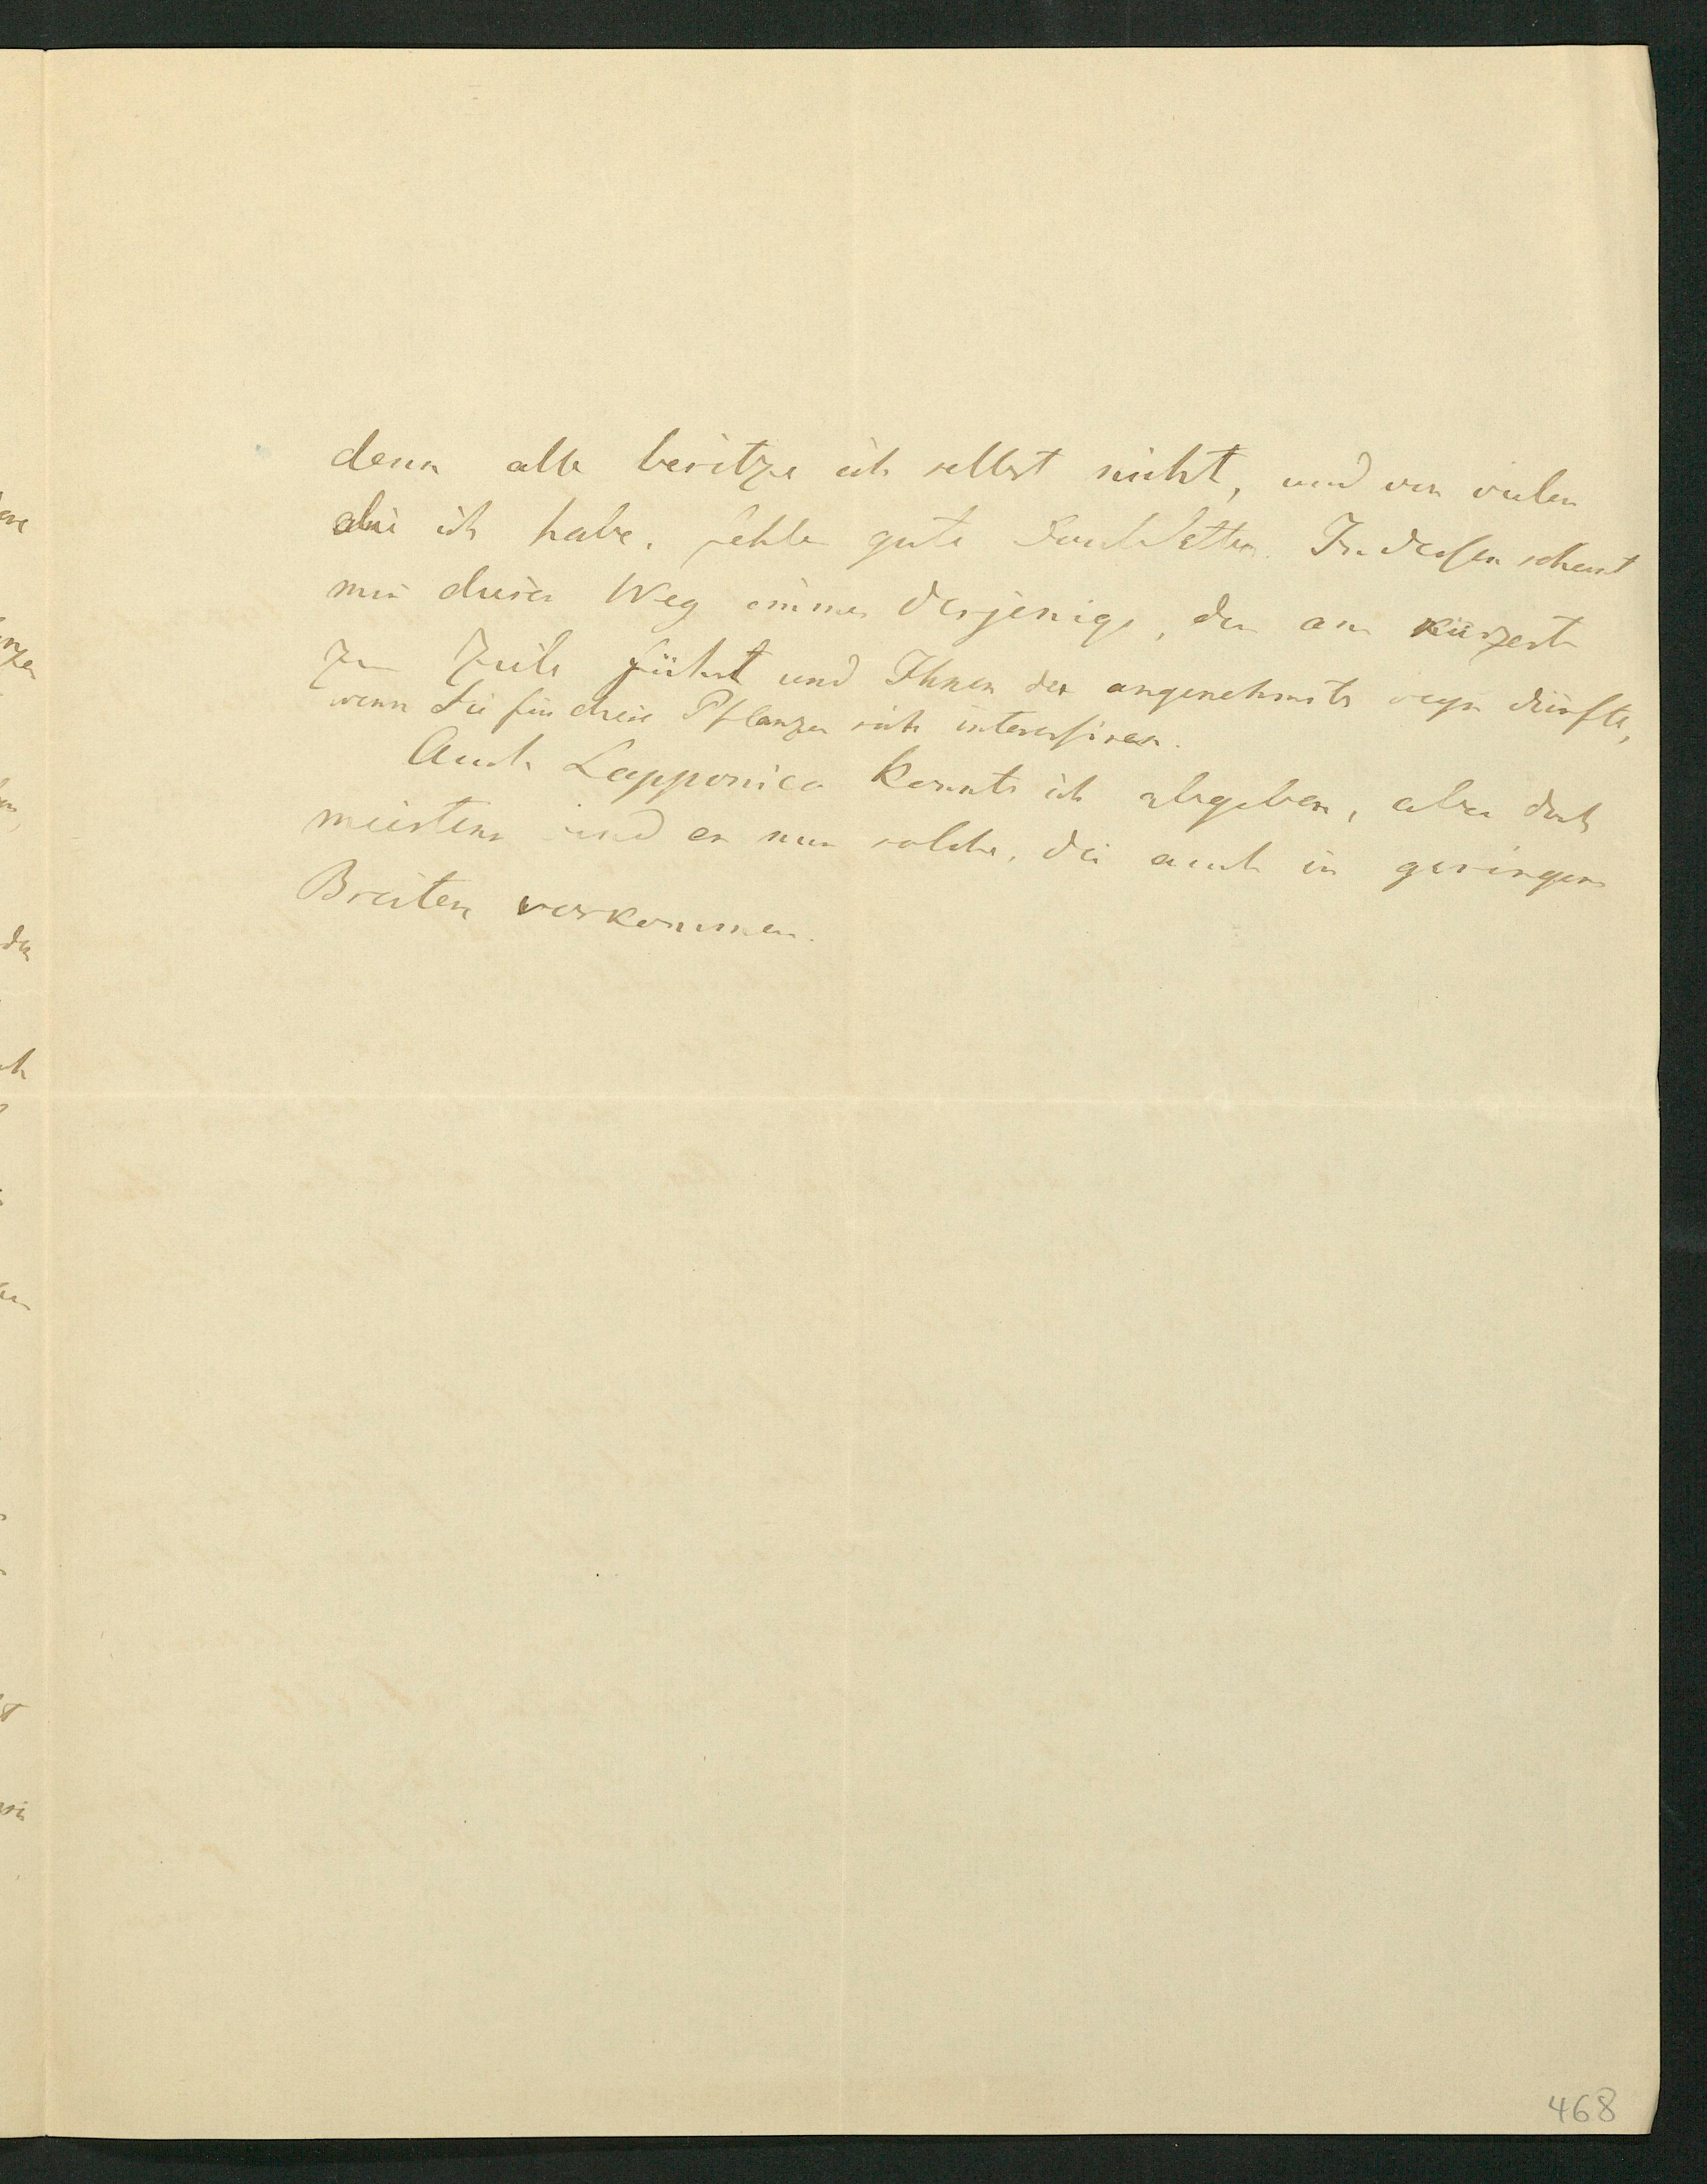 denn alle besitze ich selbst nicht, und von vielen
die ich habe, fehlen gute Doubletten. Indessen scheint
mir dieser Weg immer derjenige, der am kürzesten
zum Ziele führt und Ihnen der angenehmste seyn dürfte,
wenn Sie für diese Pflanzen sich interessiren.
Auch Lapponica konnte ich abgeben, aber doch
meistens sind es nur solche, die auch in geringern
Breiten vorkommen.
468